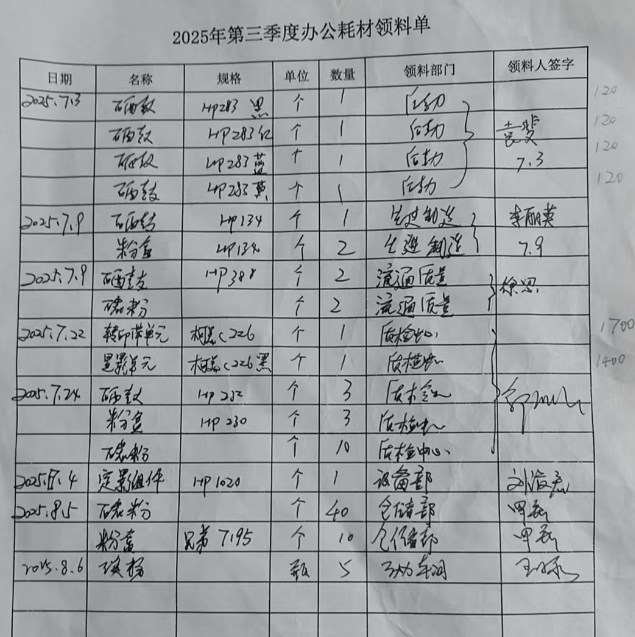 2025年第三季度办公耗材领料单
日期 名称 规格 单位 数量 领料部门 领料人签字
2025.7.3 硒鼓 HP283 黑 个 1 后勤 120
硒鼓 HP283红 个 1 后勤 120
硒鼓 HP283蓝 个 1 后勤 7.3 120
硒鼓 HP283黄 个 1 后勤 120
2025.7.9 硒鼓 HP134 个 1 生产制造 李丽英
粉盒 HP134 个 2 生产制造 7.9
2025.7.9 硒鼓 HP388 个 2 流通质量
碳粉 个 2 流通质量
2025.7.22 转印带单元 柯美C226 个 1 质检中心 1700
显影单元 柯美C226黑 个 1 质检中心 1400
2025.7.24 硒鼓 HP 232 个 3 质检中心
粉盒 HP 230 个 3 质检中心
碳粉 个 10 质检中心
2025.8.4 定影组件 HP1020 个 1 设备部
2025.8.5 碳粉 个 40 仓储部
粉盒 兄弟 7195 个 10 仓储部
2025.8.6 碳粉 瓶 5 动力车间